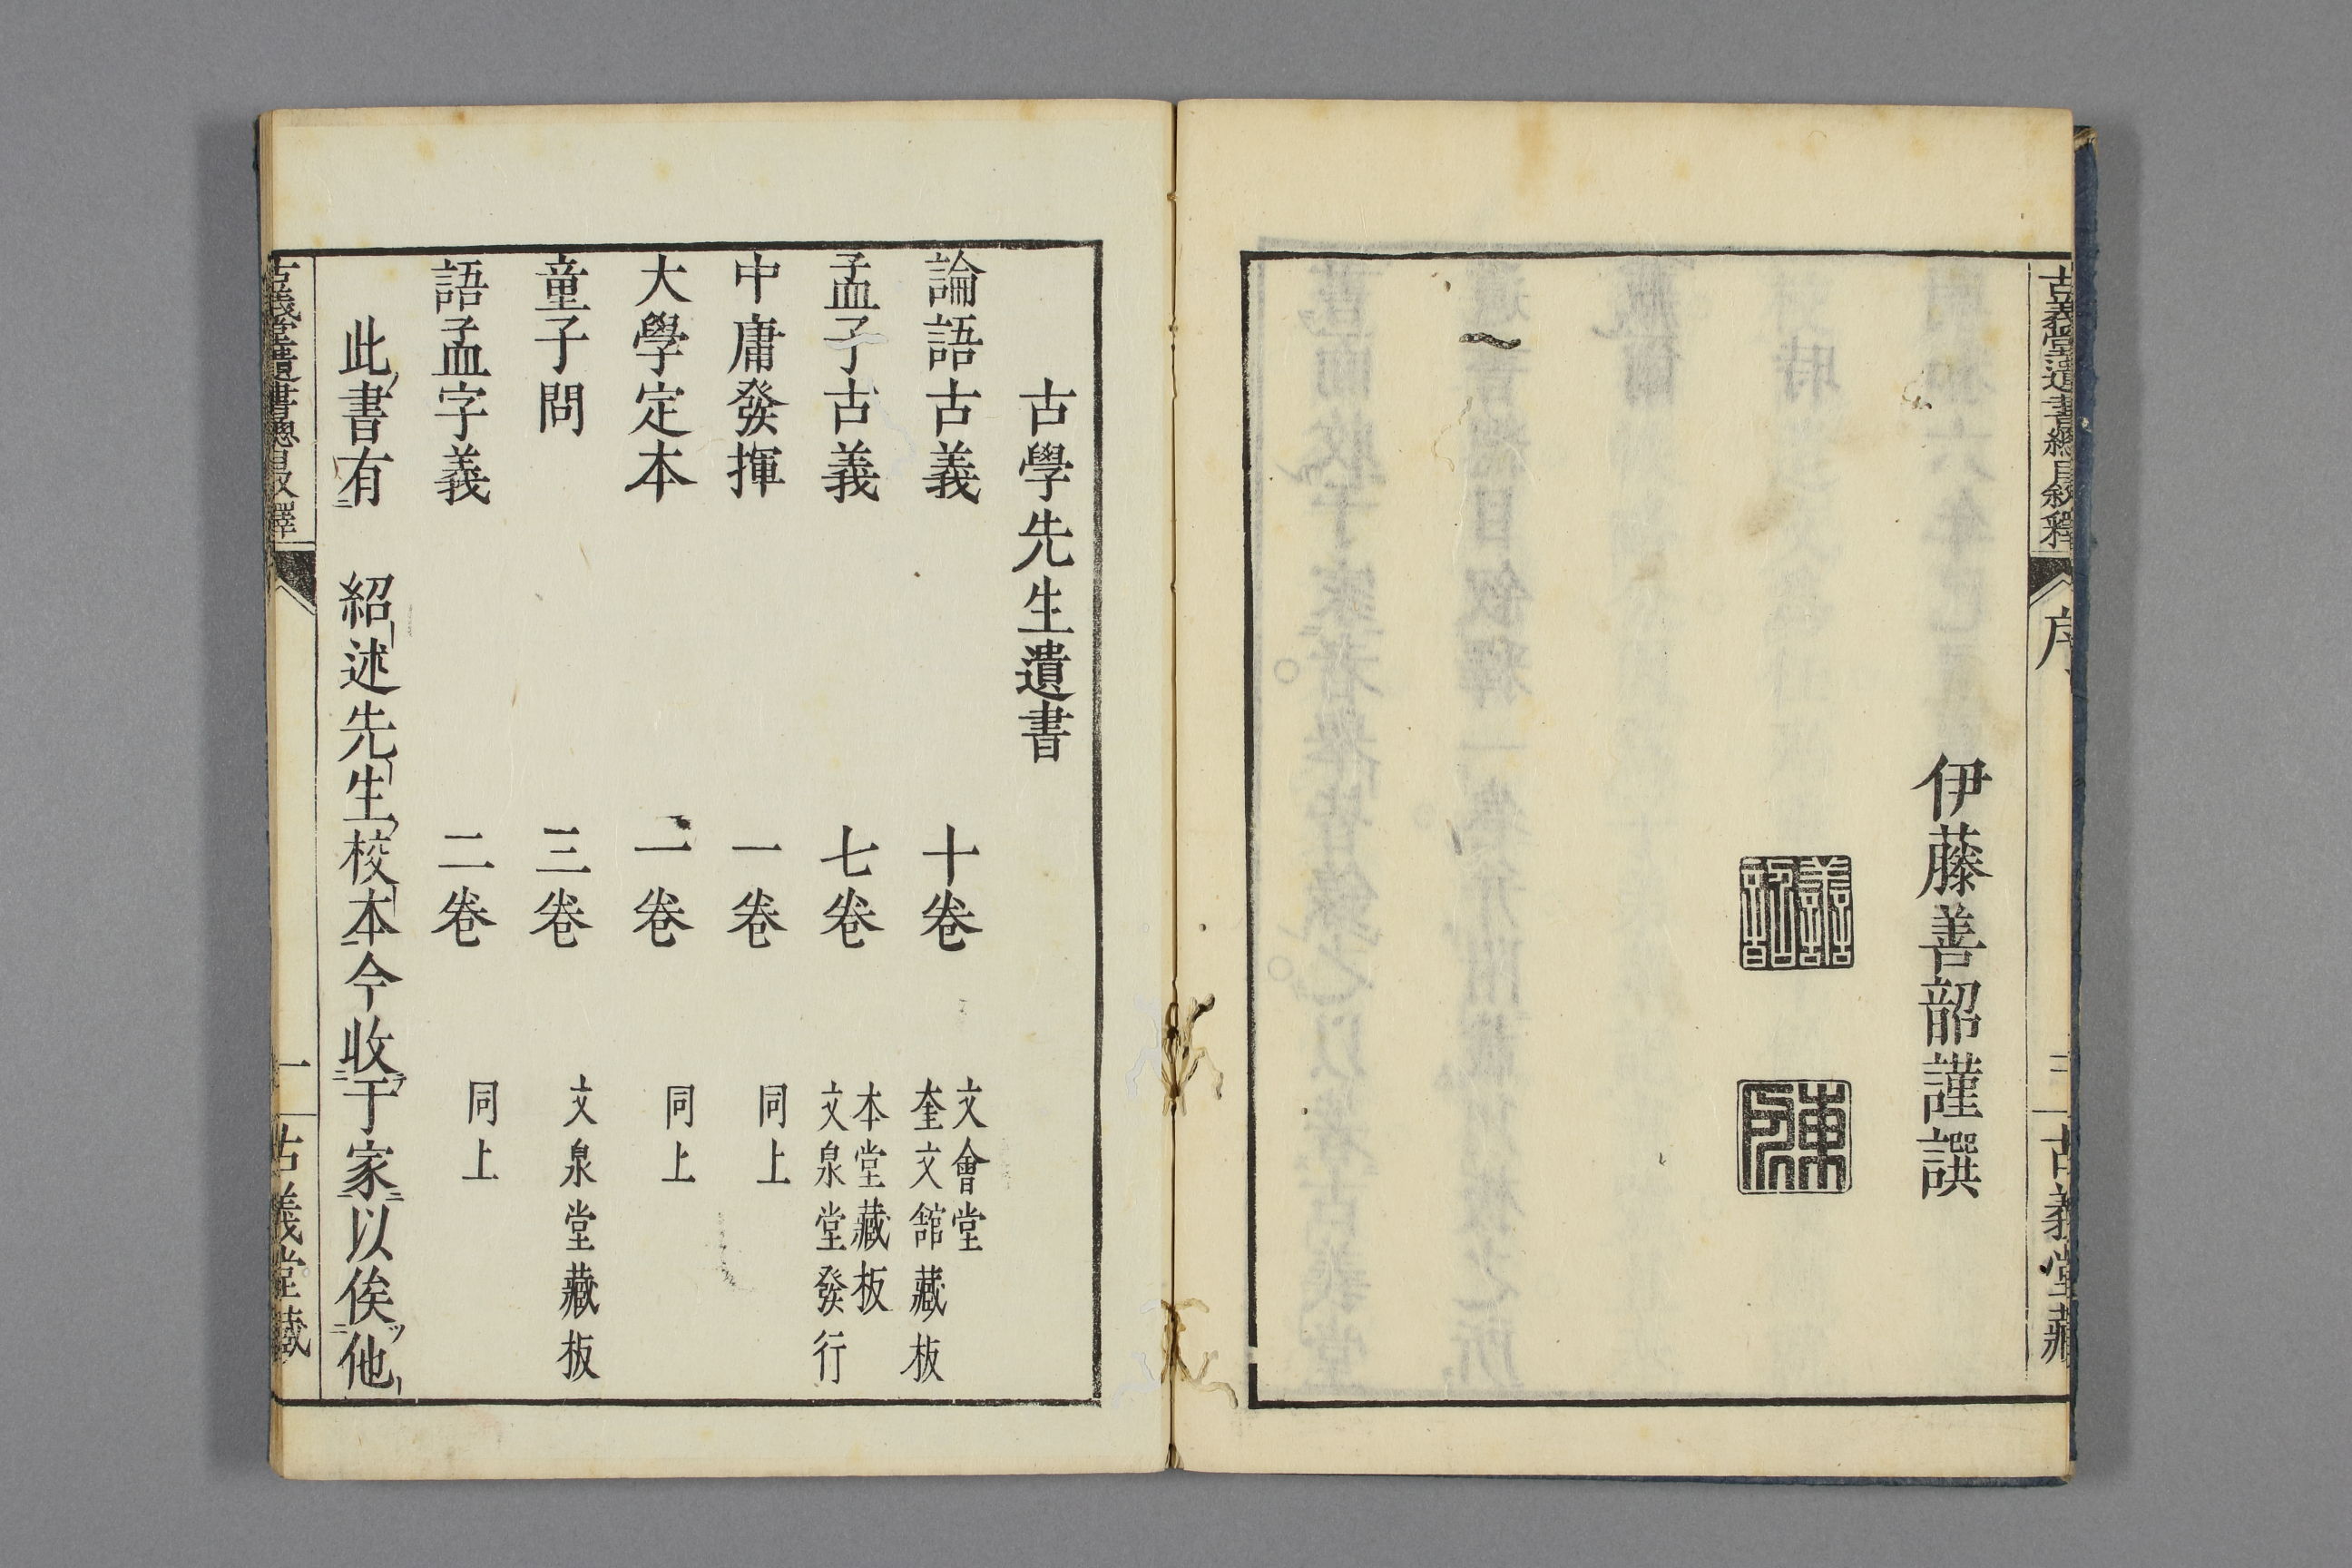 古義堂遺書總目叙釋
序
三
古義堂藏
伊藤善韶謹譔
古學先生遺書
論語古義 十卷 文會堂
奎文舘藏板
孟子古義 七卷 本堂藏板
文泉堂發行
中庸發揮 一卷 同上
大學定本 一卷 同上
童子問 三卷 文泉堂藏板
語孟字義 二卷 同上
此書有 紹述先生校本今收于家以俟他
古義堂遺書總目叙釋
一
古義堂藏